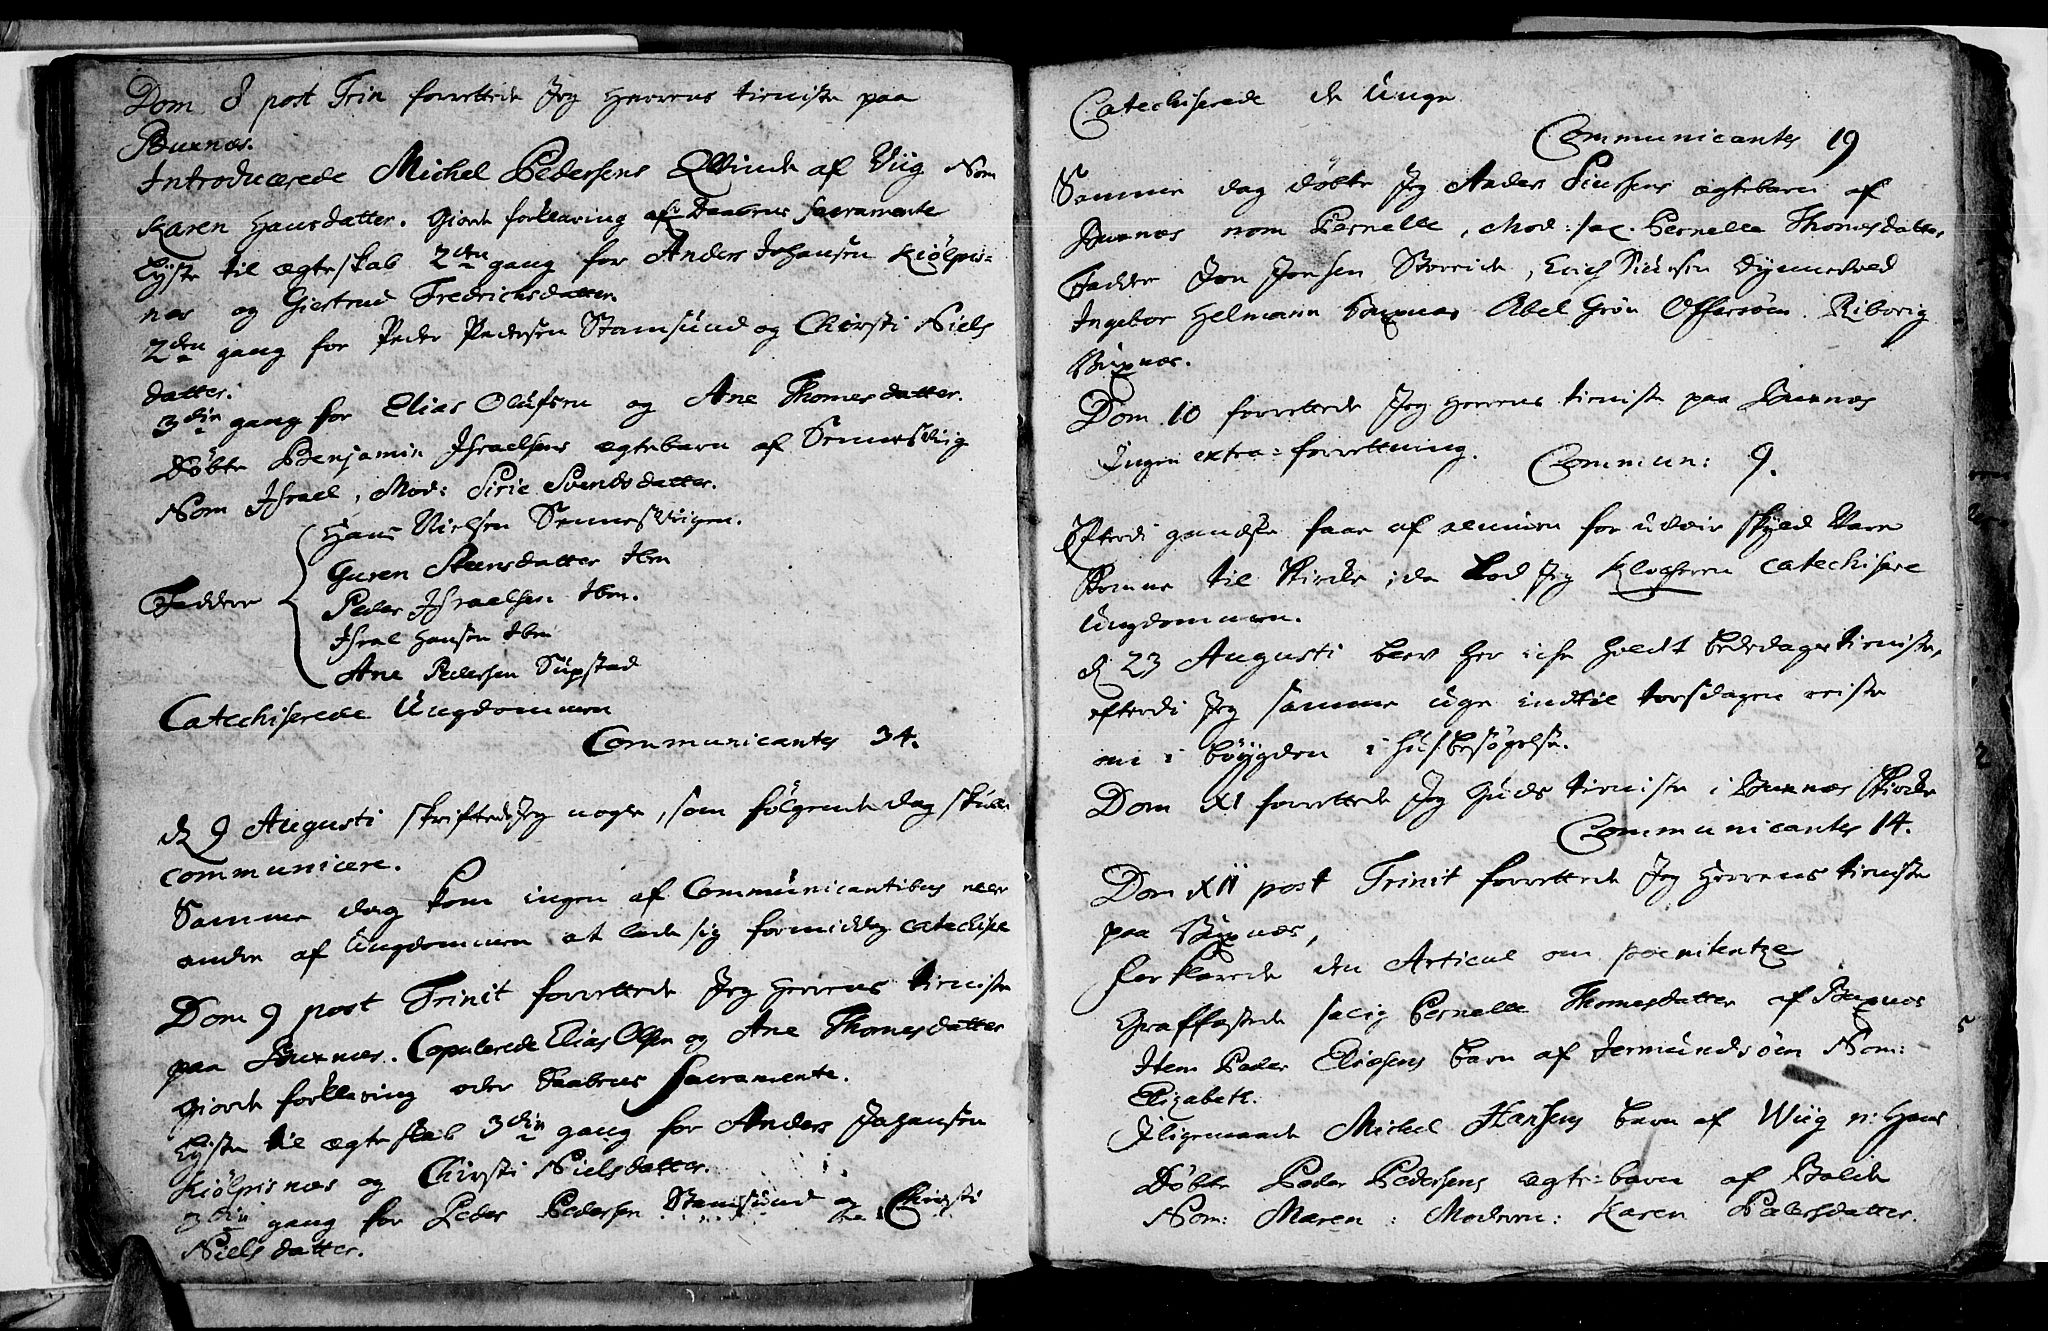 Dom 8 post Trin forrettede Jeg Herrens tieniste paa
Buxnæs.
Introducerede Michel Pedersens Qvinde af Viig Nom
Karen Hansdatter. Giorde forklaring af Daabens Sacramente
Lyste til ægteskab 2den gang for Anders Johansen Kiølpis=
næs og Giertrud Fredrichsdatter
2den gang for Peder Pedersen Stamsund og Chirsti Niels
datter.
3die gang for Elias Olufsen og Ane Thomesdatter.
Døbte Benjamin Israelsens ægtebarn af Sennesviig
Nom Israel, Mod: Sirie Svendsdatter.
Faddere
Hans Nielsen Sennesviigen.
Guren Steensdatter Ibm
Peder Israelsen Ibm.
Isral Hansen Ibm
Ane Pedersen Supstad
Catechiserede Ungdommen
Communicantes 34.
d 9 Augusti skriftede Jeg nogle, som følgende dag skulle
communicere.
Samme dag kom ingen af Communicantibus eller
andre af Ungdommen at lade sig formiddag catechise
Dom 9 post Trinit forrettede Jeg Herrens tieniste
paa Buxnæs. Copulerede Elias Olsen og Ane Thomesdatter
Giorde forklaring over Daabens Sacramente.
Lyste til ægteskab 3die gang for Anders Johansen
Kiølpisnæs og Chirsti Nielsdatter.
3die gang for Peder Pedersen Stamsund og Chirsti
Nielsdatter.
Catechiserede de Unge
Communicantes 19
Samme dag døbte Jeg Anders Siursens ægtebarn af
Buxnæs nom Pernelle, Mod: sal. Pernelle Thomesdatter
Faddere Jon Jonsen Storeide, Erich Siursen
Ingebor Helmann Buxnæs Abel Grøn Offersøen Riborig
Buxnæs.
Dom 10 forrettede Jeg Herrens tieniste paa Buxnæs
Ingen extra=forrettning. Commun: 9.
Efterdi gandske faae af almuen for uveir skyld vare
komne til Kirke, da bad Jeg Klocheren catechisere
Ungdommen.
d 23 Augusti blev her iche holdt bededags tieniste,
efterdi Jeg samme uge indtil torsdagen reiste
om i bøygden i huusbesøgelse.
Dom XI forrettede Jeg Guds tieniste i Buxnæs Kirke
Communicantes 14.
Dom XII post Trinit forrettede Jeg Herrens tieniste
paa Buxnæs,
forklarede den Articul om poenitentze
Graffæstede salig Pernelle Thomesdatter af Buxnæs
Item Peder Eliæsens barn af Jermundsøen Nom:
Elizabeth.
Iligemaade Michel Hansens barn af Wiig n: Hans
Døbte Peder Pedersens ægte=barn af Balle
Nom: Maren: Moderen: Karen Pedersdatter.